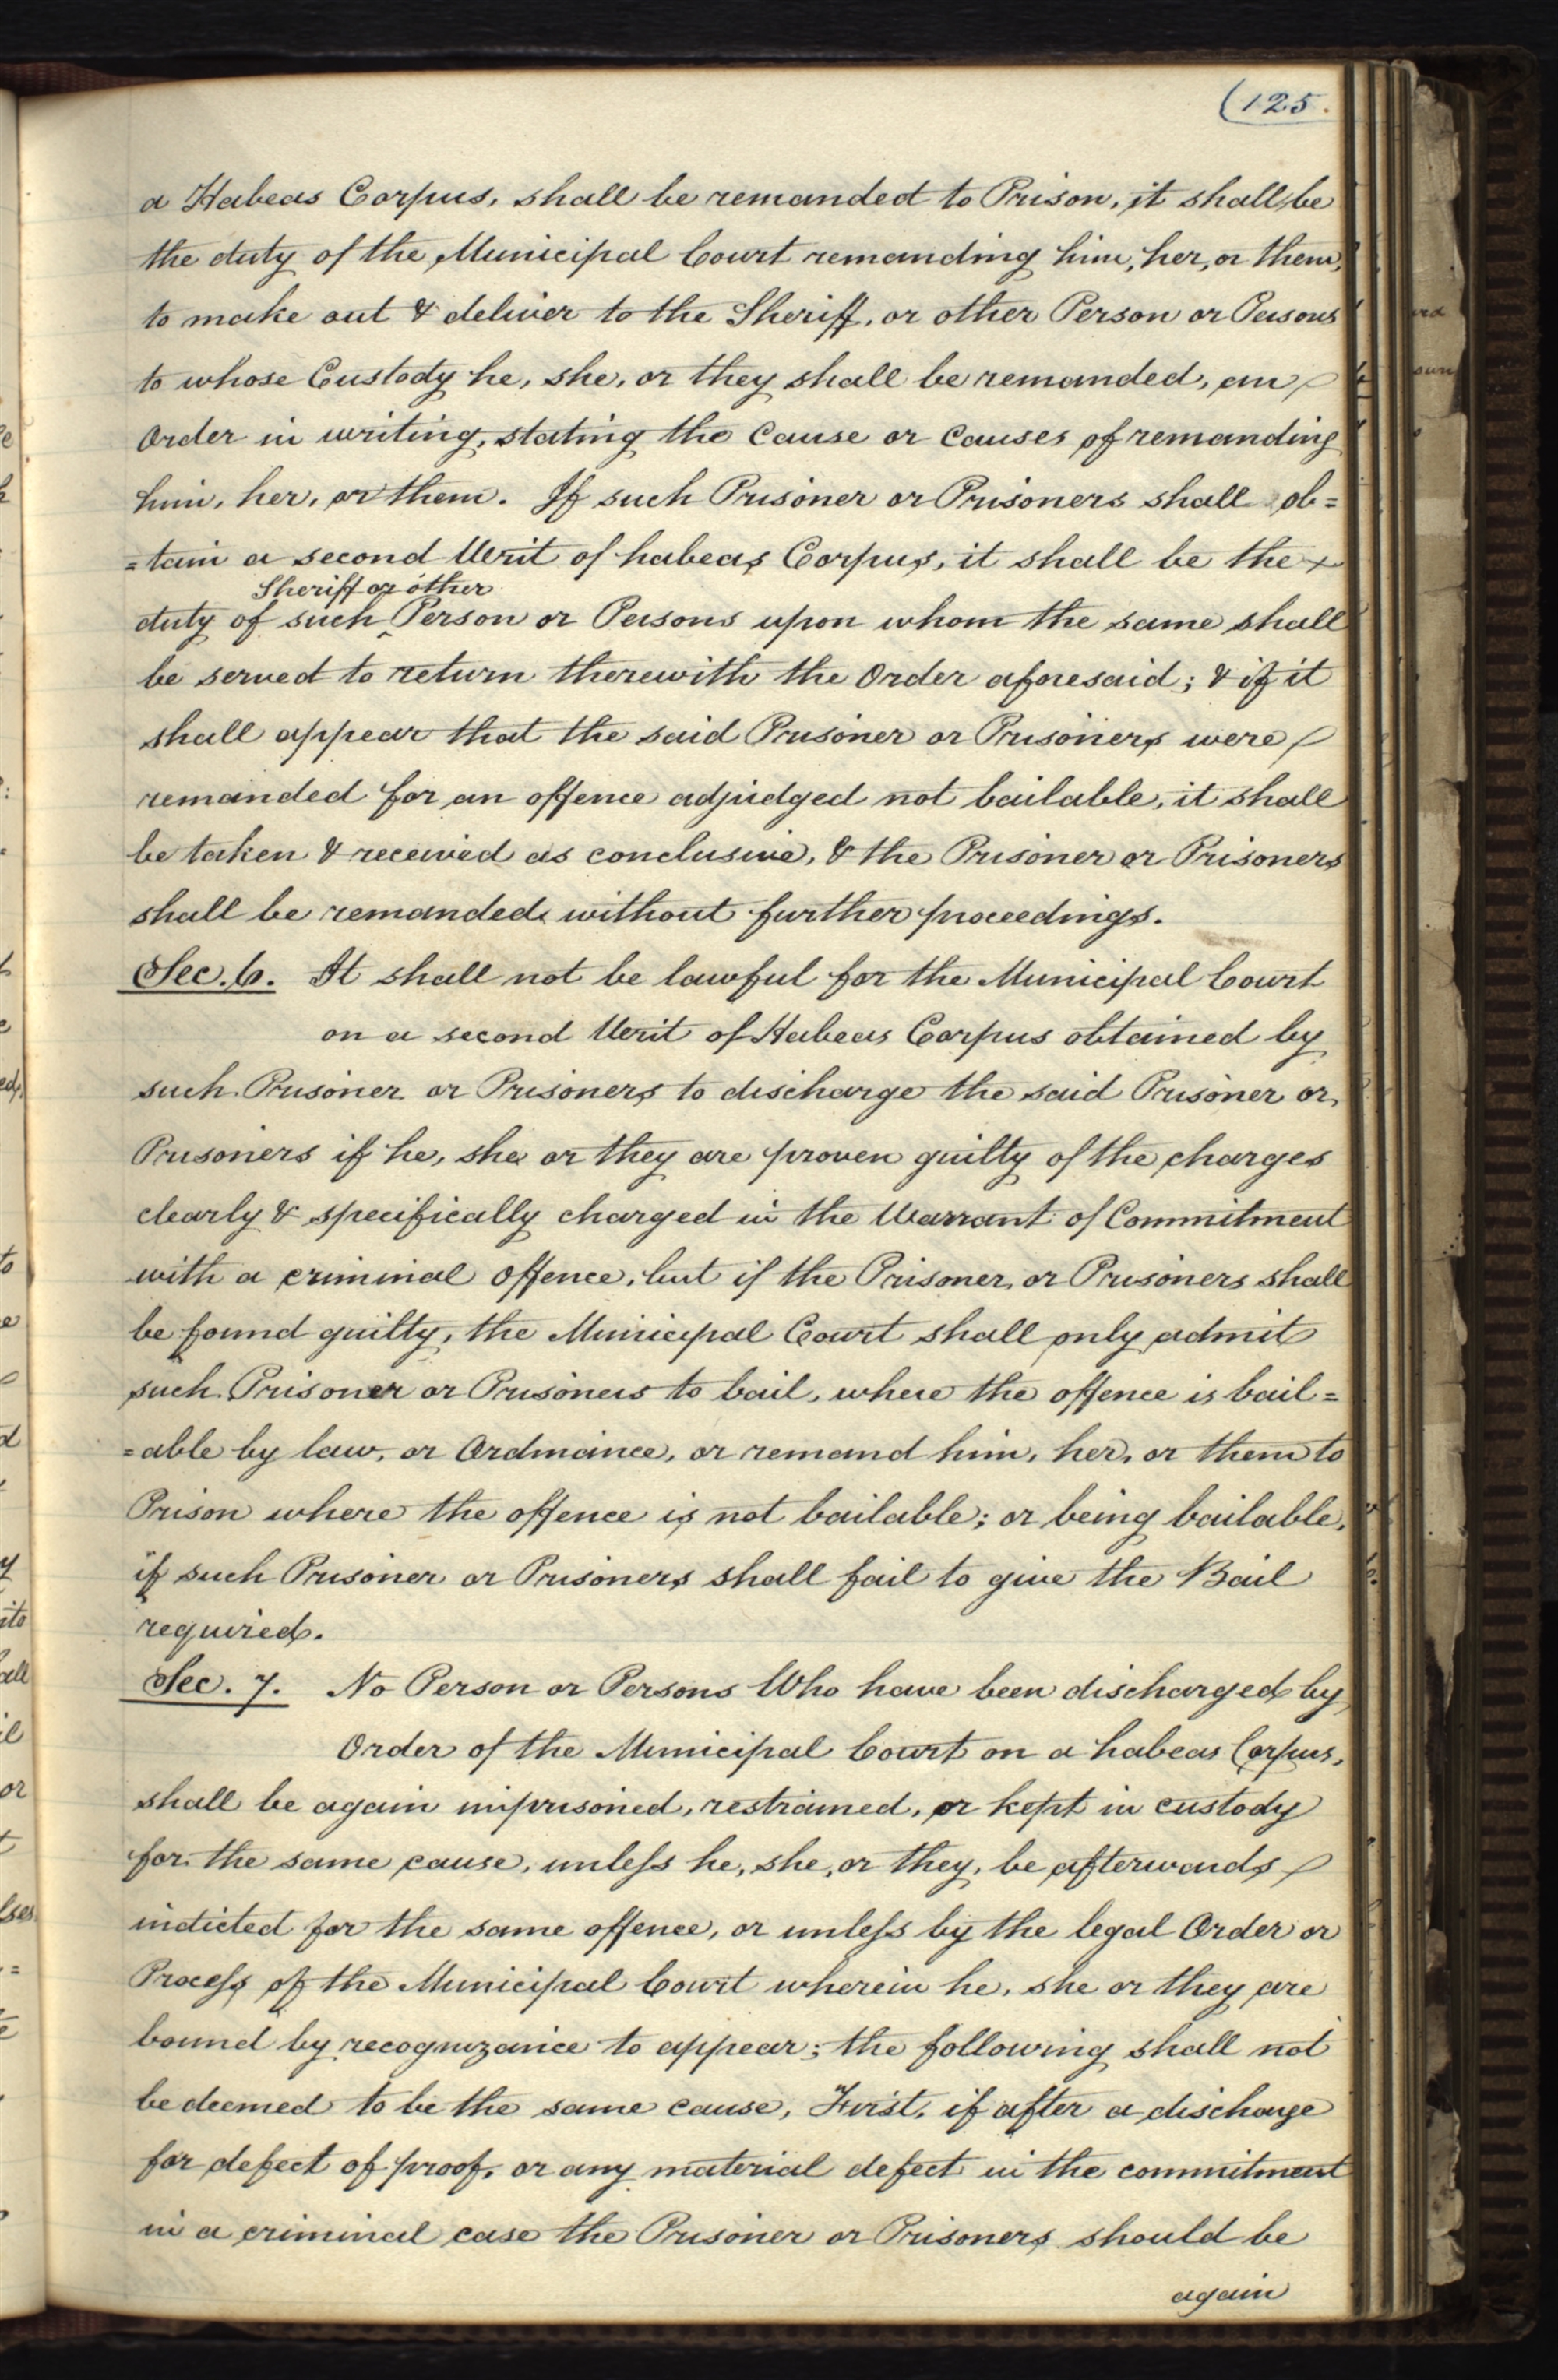 (125.
a Habeas Corpus, shall be remanded to Prison, it shall be
the duty of the Municipal Court remanding him, her, or them,
to make out & deliver to the Sheriff, or other Person or Persons
to whose Custody he, she, or they shall be remanded, an
Order in writing, stating the Cause or Causes of remanding
him, her, or them. If such Prisoner or Prisoners shall ob=
=tain a second Writ of habeas Corpus, it shall be the
Sheriff or other
duty of such ‸ Person or Persons upon whom the same shall
be served to return therewith the Order aforesaid; & if it
shall appear that the said Prisoner or Prisoners were
remanded for an offence adjudged not bailable, it shall
be taken & received as conclusive, & the Prisoner or Prisoners
shall be remanded without further proceedings.
Sec. 6. It shall not be lawful for the Municipal Court
on a second Writ of Habeas Corpus obtained by
such Prisoner or Prisoners to discharge the said Prisoner or,
Prisoners if he, she or they are proven guilty of the charges
clearly & specifically charged in the Warrant of Commitment
with a criminal offence, but if the Prisoner, or Prisoners shall
be found guilty, the Municipal Court shall only admit
such Prisoner or Prisoners to bail, where the offence is bail=
=able by law, or Ordinance, or remand him, her, or them to
Prison where the offence is not bailable; or being bailable,
if such Prisoner or Prisoners shall fail to give the Bail
required.
Sec. 7. No Person or Persons Who have been discharged by
Order of the Municipal Court on a habeas Corpus,
shall be again imprisoned, restrained, or kept in custody
for the same cause, unleſs he, she, or they, be afterwards
indicted for the same offence, or unleſs by the legal Order or
Proceſs of the Municipal Court wherein he, she or they are
bound by recognizance to appear; the following shall not
be deemed to be the same cause, First, if after a discharge
for defect of proof, or any material defect in the commitment
in a criminal case the Prisoner or Prisoners should be
again